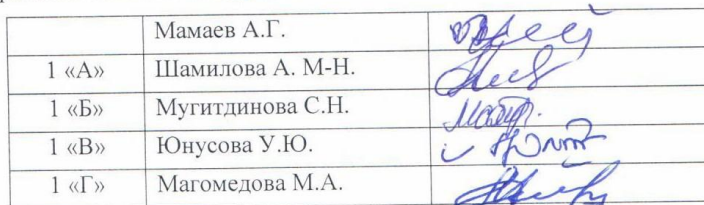 Мамаев А.Г.
1 «А» Шамилова А. М-Н.
1 «Б» Мугитдинова С.Н.
1 «В» Юнусова У.Ю.
1 «Г» Магомедова М.А.